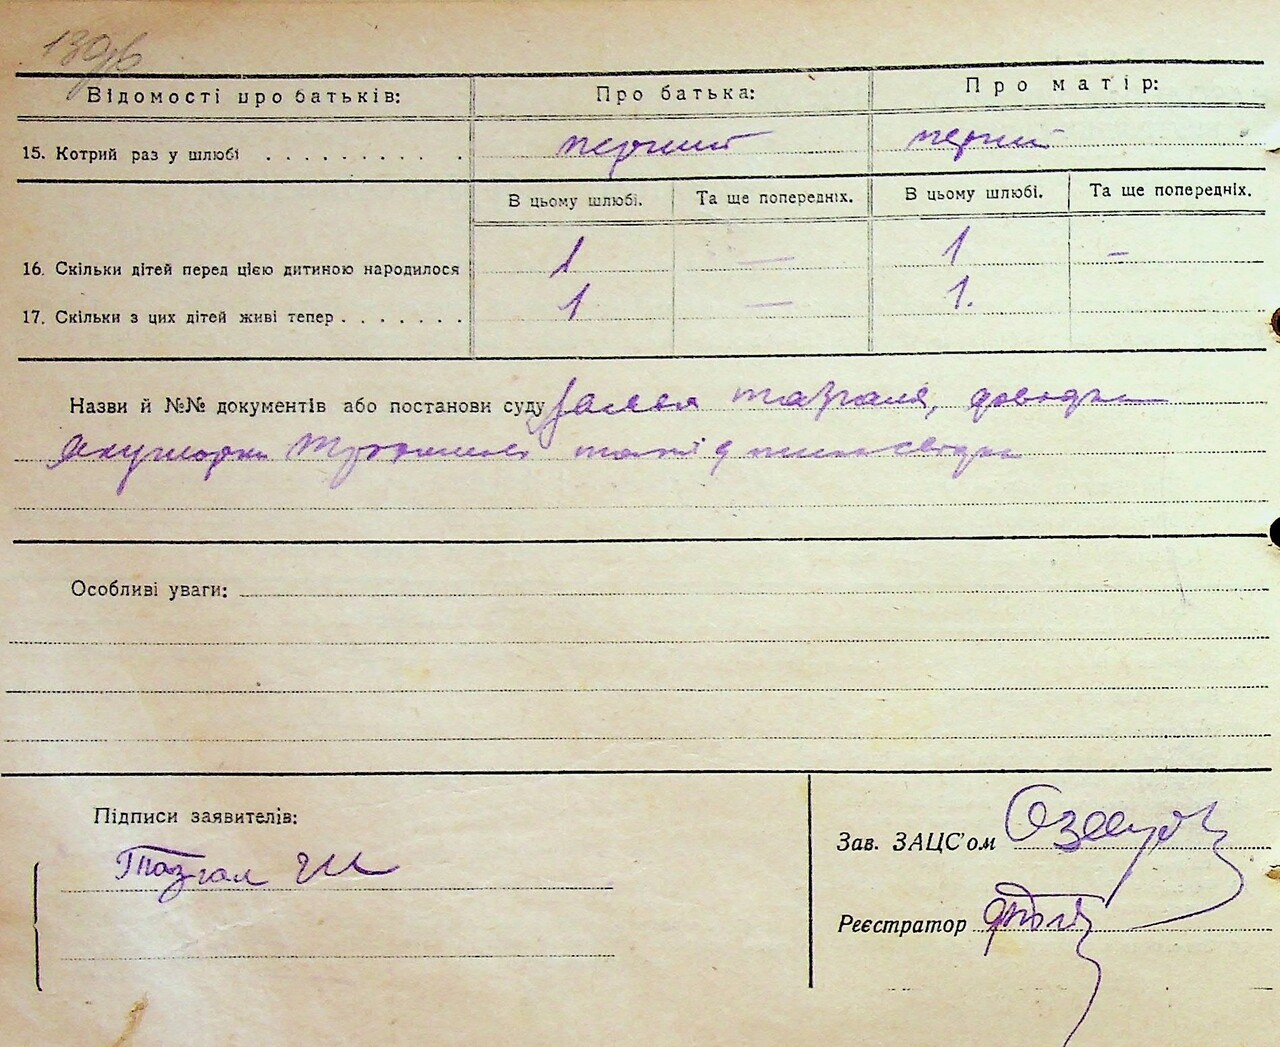 139б
Відомості про батьків: Про батька: Про матір:
15. Котрий раз у шлюбі . . . . . . . . . . перший перший
В цьому шлюбі. Та ще попередніх. В цьому шлюбі. Та ще попередніх.
16. Скільки дітей перед цією дитиною народилося 1 — 1 —
17. Скільки з цих дітей живі тепер . . . . . . . 1 — 1.
Назви й №№ документів або постанови суду Заява
акушорки
Особливі уваги:
Підписи заявителів:
Зав. ЗАЦС'ом
Реєстратор